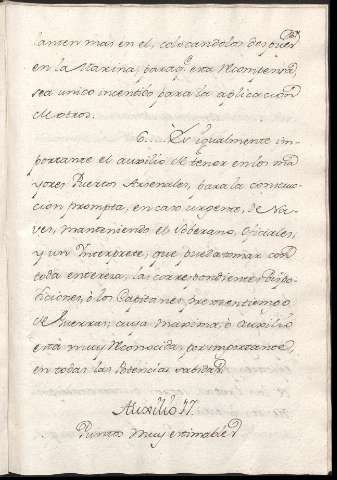 lanten mas en el, colocandolos despues
en la Marina, paraq.e esta Recompensa,
sea unico incentibo para la aplicacion
de otros.
6..... Es igualmente im-
portante el auxilio de tener en los ma-
yores Puertos Arsenales, para la construc-
cion prompta, en caso urgente, de Na-
ves, manteniendo el Soberano, Oficiales,
y un Interprete, que pueda tomar con
toda entereza, las correspondientes Dispo-
siciones, ô los Capitanes, pr. en tiempo
de Guerras, cuya maxima, ô auxilio
está muy Reconocida, por importante,
en todas las Potencias sabidas.
Auxilio 17.
Punto muy estimable